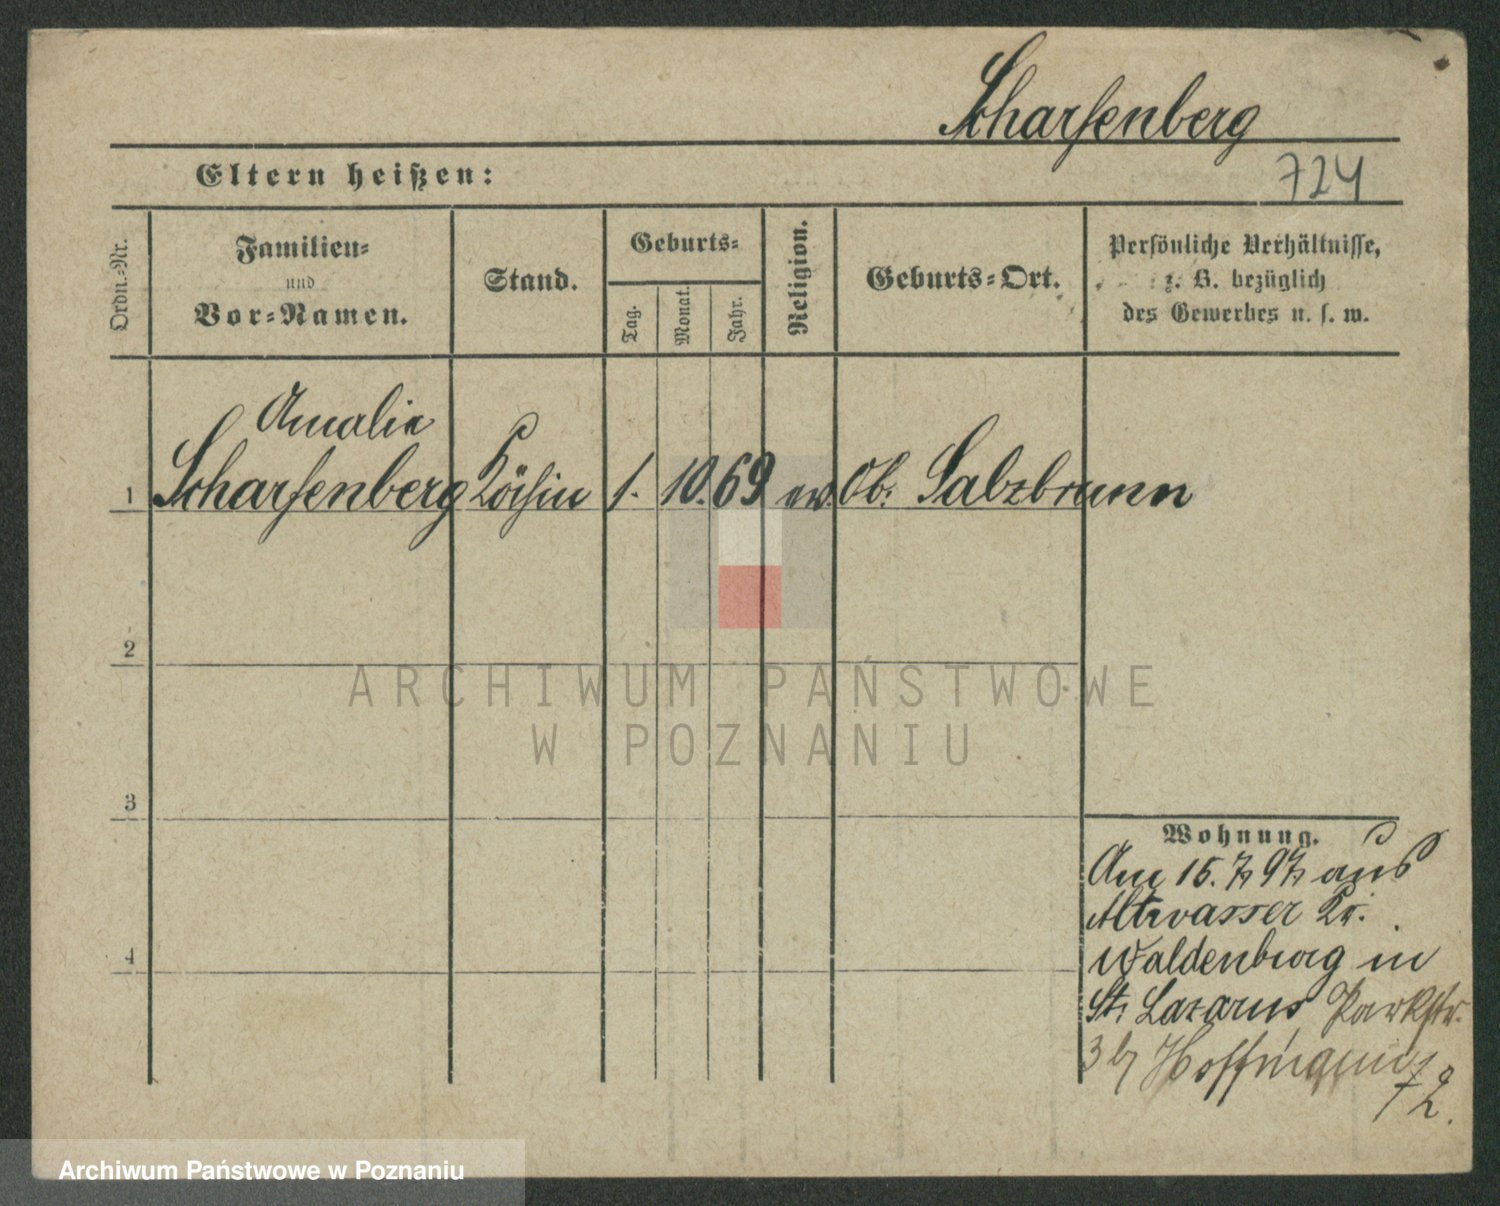 Scharfenberg
Eltern heißen:
724
Ordn.-Nr.
Familien-
und
Vor-Namen.
Stand.
Geburts-
Tag.
Monat.
Jahr.
Religion.
Geburts-Ort.
Persönliche Verhältnisse,
z. B. bezüglich
des Gewerbes u. s. w.
Amalie
1 Scharfenberg Köchin 1. 10. 69 ev. Ob. Salzbrunn
2
3
4
ARCHIWUM PAŃSTWOWE
W POZNANIU
Wohnung.
Am 15. 7 97 aus
Altwasser Kr.
Waldenburg in
St. Lazarus Parkstr.
3 b/ Hoffmann
Archiwum Państwowe w Poznaniu